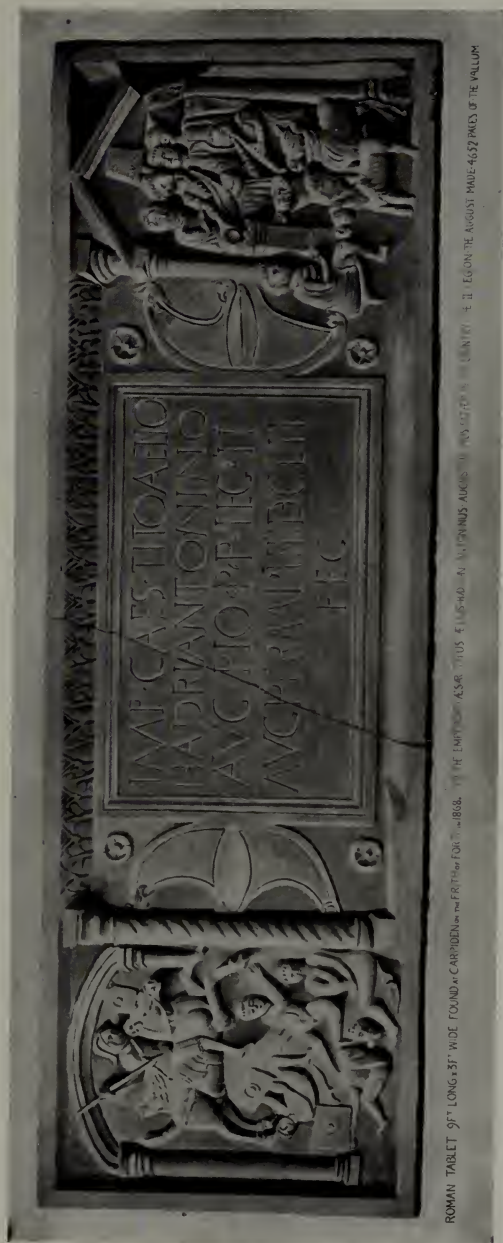 IMP·CAES·TITO·AELIO
HADRI·ANTONINO
AVG·PIO·P·P·LEG·II
AVG·PER·M·P·IIIIDCLII
FEC
ROMAN TABLET 9FT LONG x 3FT WIDE FOUND AT CARRIDEN ON THE FRITH OF FORTH IN 1868. TO THE EMPEROR CÆSAR TITUS ÆLIUS HADRIAN ANTONINUS AUGUSTUS PIUS FATHER OF HIS COUNTRY THE II LEGION THE AUGUST MADE 4652 PACES OF THE VALLUM